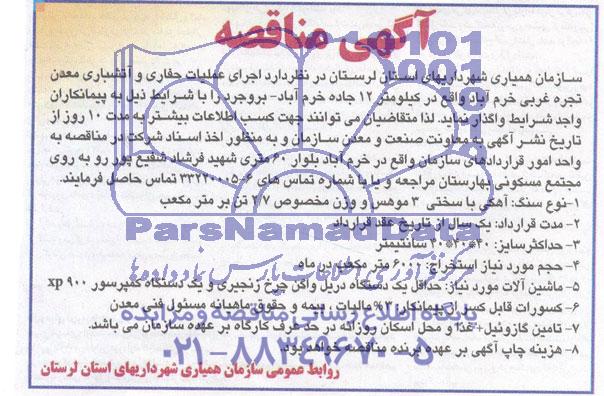 آگهی مناقصه
سازمان همیاری شهرداریهای استان لرستان در نظردارد اجرای عملیات حفاری و آتشباری معدن
تجره غربی خرم آباد واقع در کیلومتر ۱۲ جاده خرم آباد- بروجرد را با شرایط ذیل به پیمانکاران
واجد شرایط واگذار نماید. لذا متقاضیان می توانند جهت کسب اطلاعات بیشتر به مدت ۱۰ روز از
تاریخ نشر آگهی به معاونت صنعت و معدن سازمان و به منظور اخذ اسناد شرکت در مناقصه به
واحد امور قراردادهای سازمان واقع در خرم آباد بلوار ۶۰ متری شهید فرشاد شفیع پور رو به روی
مجتمع مسکونی بهارستان مراجعه و یا با شماره تماس های ۶-۳۳۲۲۰۰۰۵ تماس حاصل فرمایند.
۱-نوع سنگ: آهکی با سختی ۳ موهس و وزن مخصوص ۲/۷ تن بر متر مکعب
۲- مدت قرارداد: یک سال از تاریخ عقد قرارداد
۳- حداکثرسایز: ۴۰*۴۰*۴۰ سانتیمتر
۴- حجم مورد نیاز استخراج: ۶۰۰۰ متر مکعب در ماه
۵- ماشین آلات مورد نیاز: حداقل یک دستگاه دریل واگن چرخ زنجیری و یک دستگاه کمپرسور xp ۹۰۰
۶- کسورات قابل کسر از پیمانکار: ۳٪ مالیات ، بیمه و حقوق ماهیانه مسئول فنی معدن
۷- تامین گازوئیل+غذا و محل اسکان روزانه در حد عرف کارگاه بر عهده سازمان می باشد.
۸- هزینه چاپ آگهی بر عهده برنده مناقصه خواهد بود.
روابط عمومی سازمان همیاری شهرداریهای استان لرستان
ParsNamadData
مرکز فرآوری اطلاعات پارس نماد داده ها
پایگاه اطلاع رسانی مناقصه و مزایده
۰۲۱-۸۸۳۴۹۶۷۰-۵